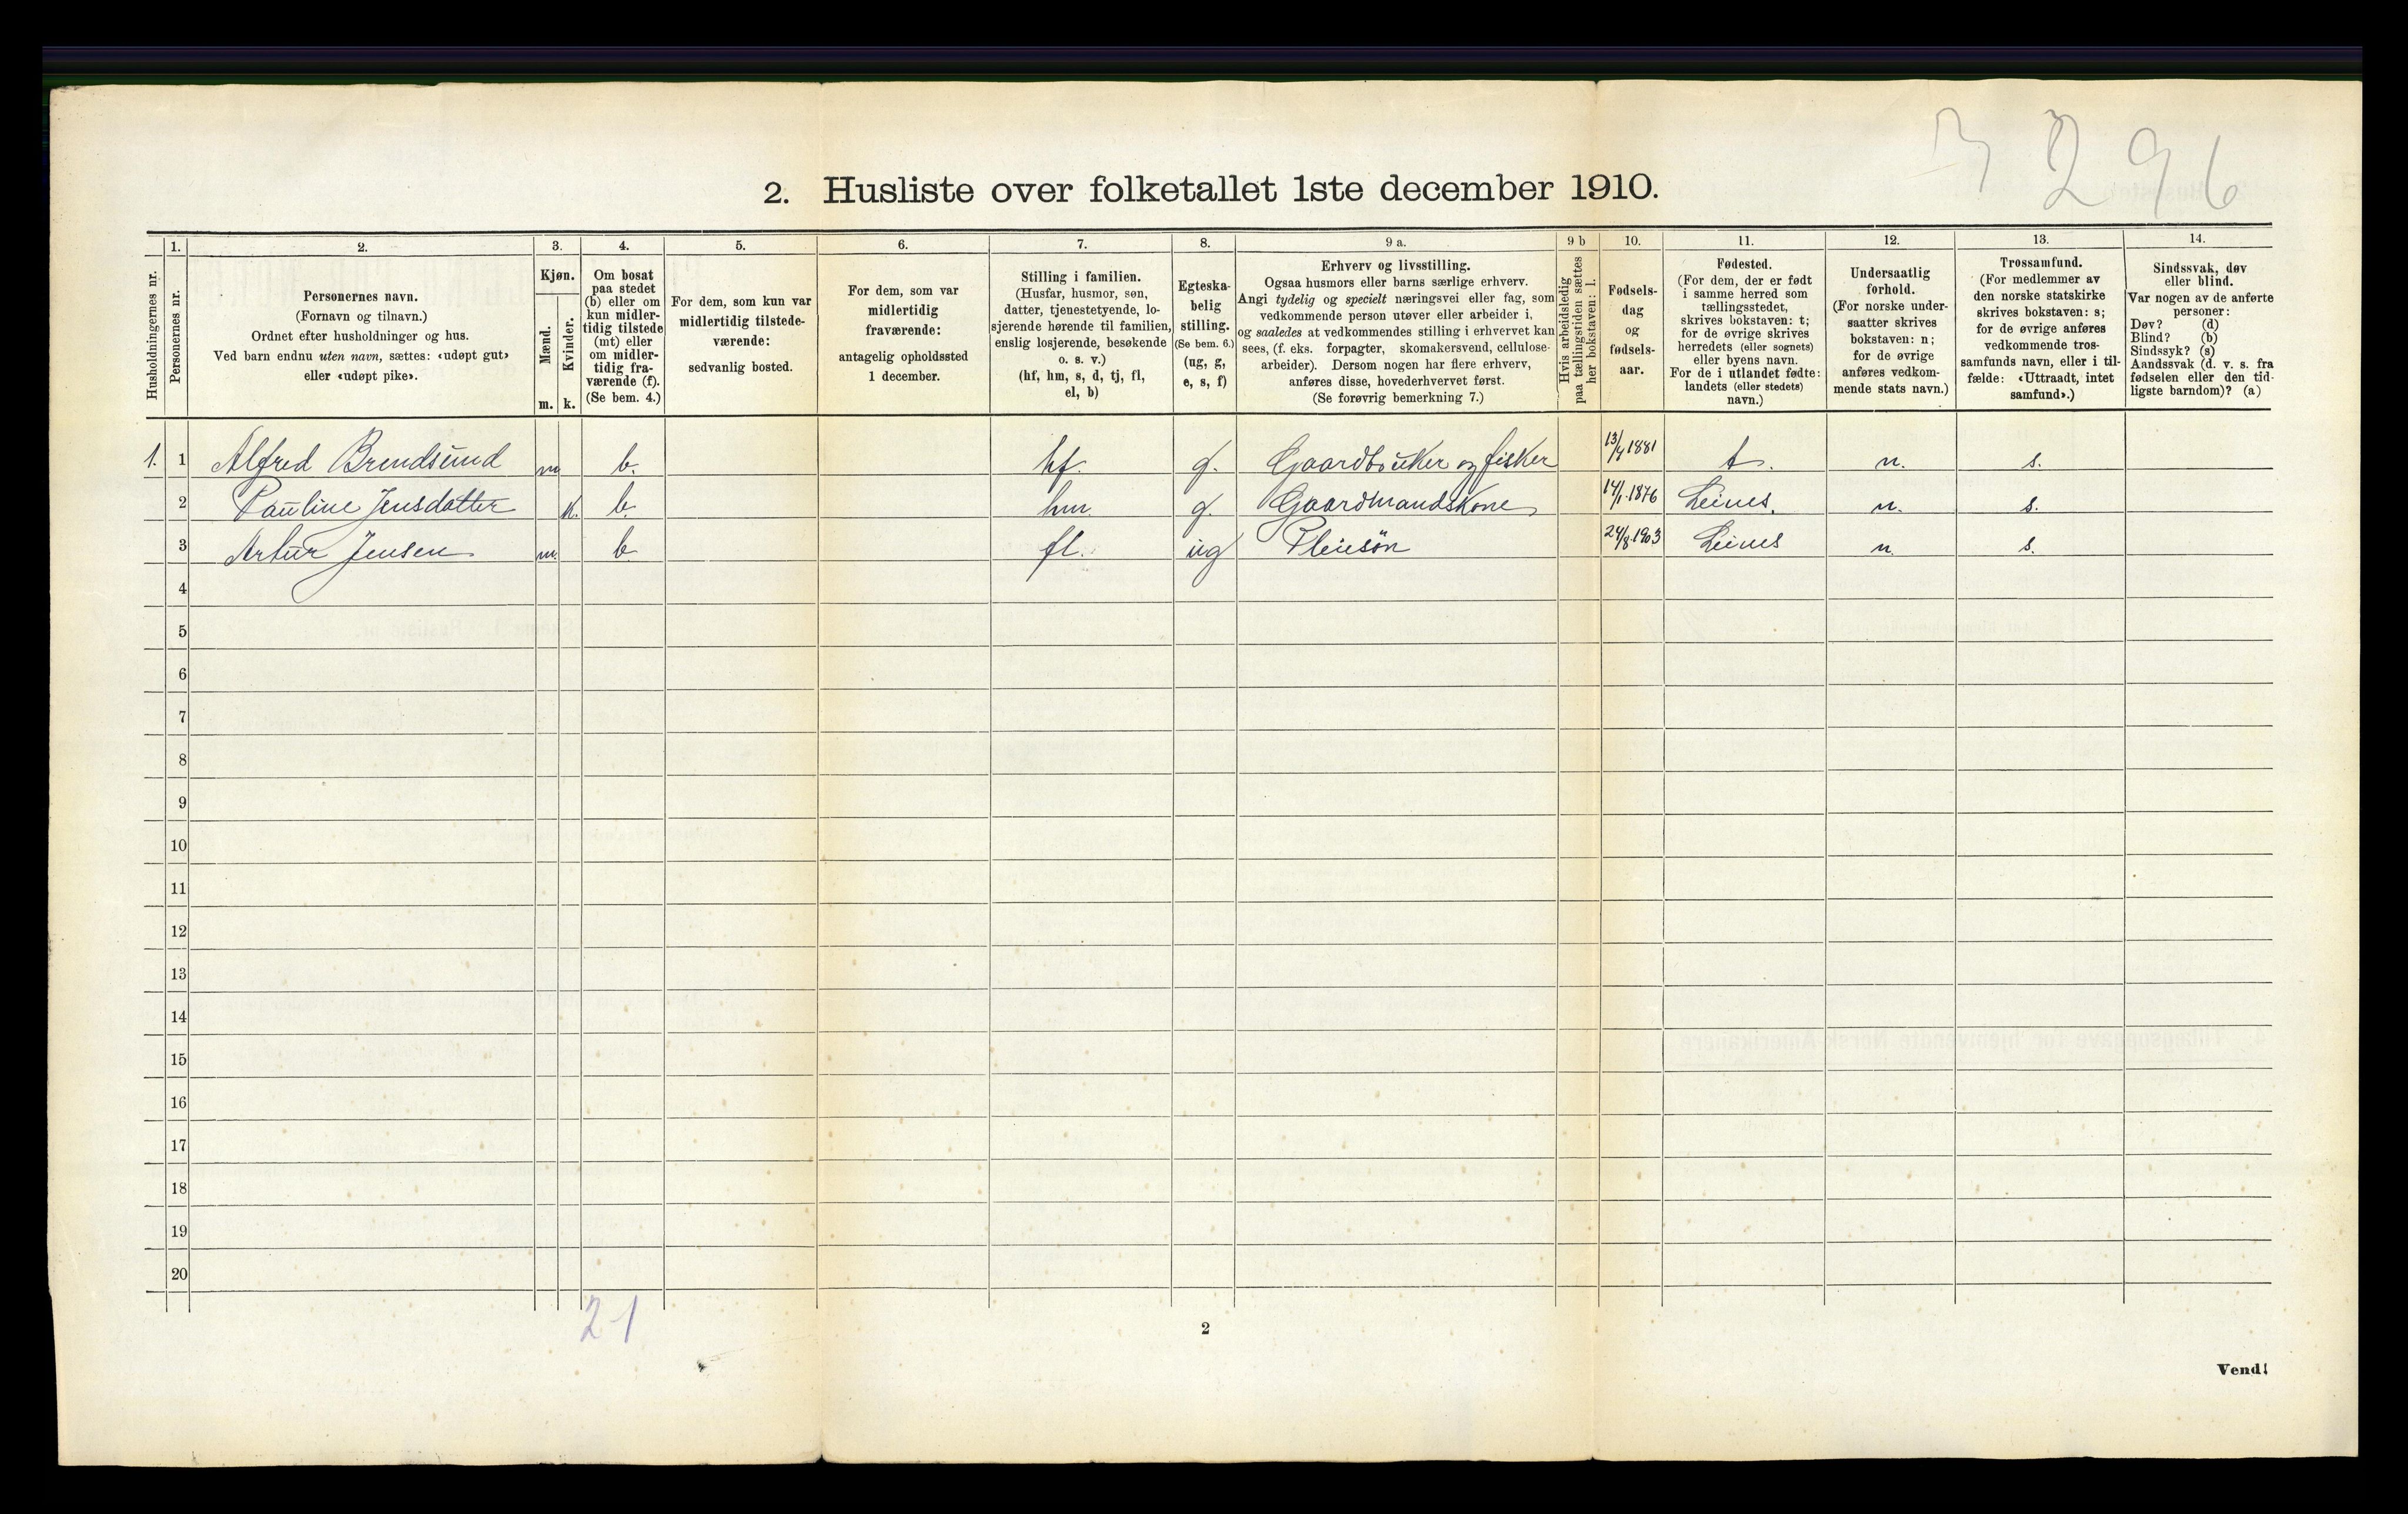 3 296
2. Husliste over folketallet 1ste december 1910.
1. 2. 3. 4. 5. 6. 7. 8. 9 a. 9 b 10. 11. 12. 13. 14.
Husholdningernes nr.
Personernes nr.
Personernes navn.
(Fornavn og tilnavn.)
Ordnet efter husholdninger og hus.
Ved barn endnu uten navn, sættes: «udøpt gut»
eller «udøpt pike».
Kjøn.
Mænd.
Kvinder.
m. k.
Om bosat
paa stedet
(b) eller om
kun midler-
tidig tilstede
(mt) eller
om midler-
tidig fra-
værende (f).
(Se bem. 4.)
For dem, som kun var
midlertidig tilstede-
værende:
sedvanlig bosted.
For dem, som var
midlertidig
fraværende:
antagelig opholdssted
1 december.
Stilling i familien.
(Husfar, husmor, søn,
datter, tjenestetyende, lo-
sjerende hørende til familien,
enslig losjerende, besøkende
o. s. v.)
(hf, hm, s, d, tj, fl,
el, b)
Egteska-
belig
stilling.
(Se bem. 6.)
(ug, g,
e, s, f)
Erhverv og livsstilling.
Ogsaa husmors eller barns særlige erhverv.
Angi tydelig og specielt næringsvei eller fag, som
vedkommende person utøver eller arbeider i,
og saaledes at vedkommendes stilling i erhvervet kan
sees, (f. eks. forpagter, skomakersvend, cellulose-
arbeider). Dersom nogen har flere erhverv,
anføres disse, hovederhvervet først.
(Se forøvrig bemerkning 7.)
Hvis arbeidsledig
paa tællingstiden sættes
her bokstaven: l.
Fødsels-
dag
og
fødsels-
aar.
Fødested.
(For dem, der er født
i samme herred som
tællingsstedet,
skrives bokstaven: t;
for de øvrige skrives
herredets (eller sognets)
eller byens navn.
For de i utlandet fødte:
landets (eller stedets)
navn.)
Undersaatlig
forhold.
(For norske under-
saatter skrives
bokstaven: n;
for de øvrige
anføres vedkom-
mende stats navn.)
Trossamfund.
(For medlemmer av
den norske statskirke
skrives bokstaven: s;
for de øvrige anføres
vedkommende tros-
samfunds navn, eller i til-
fælde: «Uttraadt, intet
samfund».)
Sindssvak, døv
eller blind.
Var nogen av de anførte
personer:
Døv? (d)
Blind? (b)
Sindssyk? (s)
Aandssvak (d. v. s. fra
fødselen eller den tid-
ligste barndom)? (a)
1. 1 Alfred Brendsund m b. hf. g. Gaardbruker og fisker 13/4 1881 t. n. s.
2 Pauline Jensdatter k. b. hm g. Gaardmandskone 14/1 1876 Leines. n. s.
3 Artur Jensen m. b fl. ug Pleiesøn 24/8 1903 Leines n. s.
4
5
6
7
8
9
10
11
12
13
14
15
16
17
18
19
20
21
2
Vend!